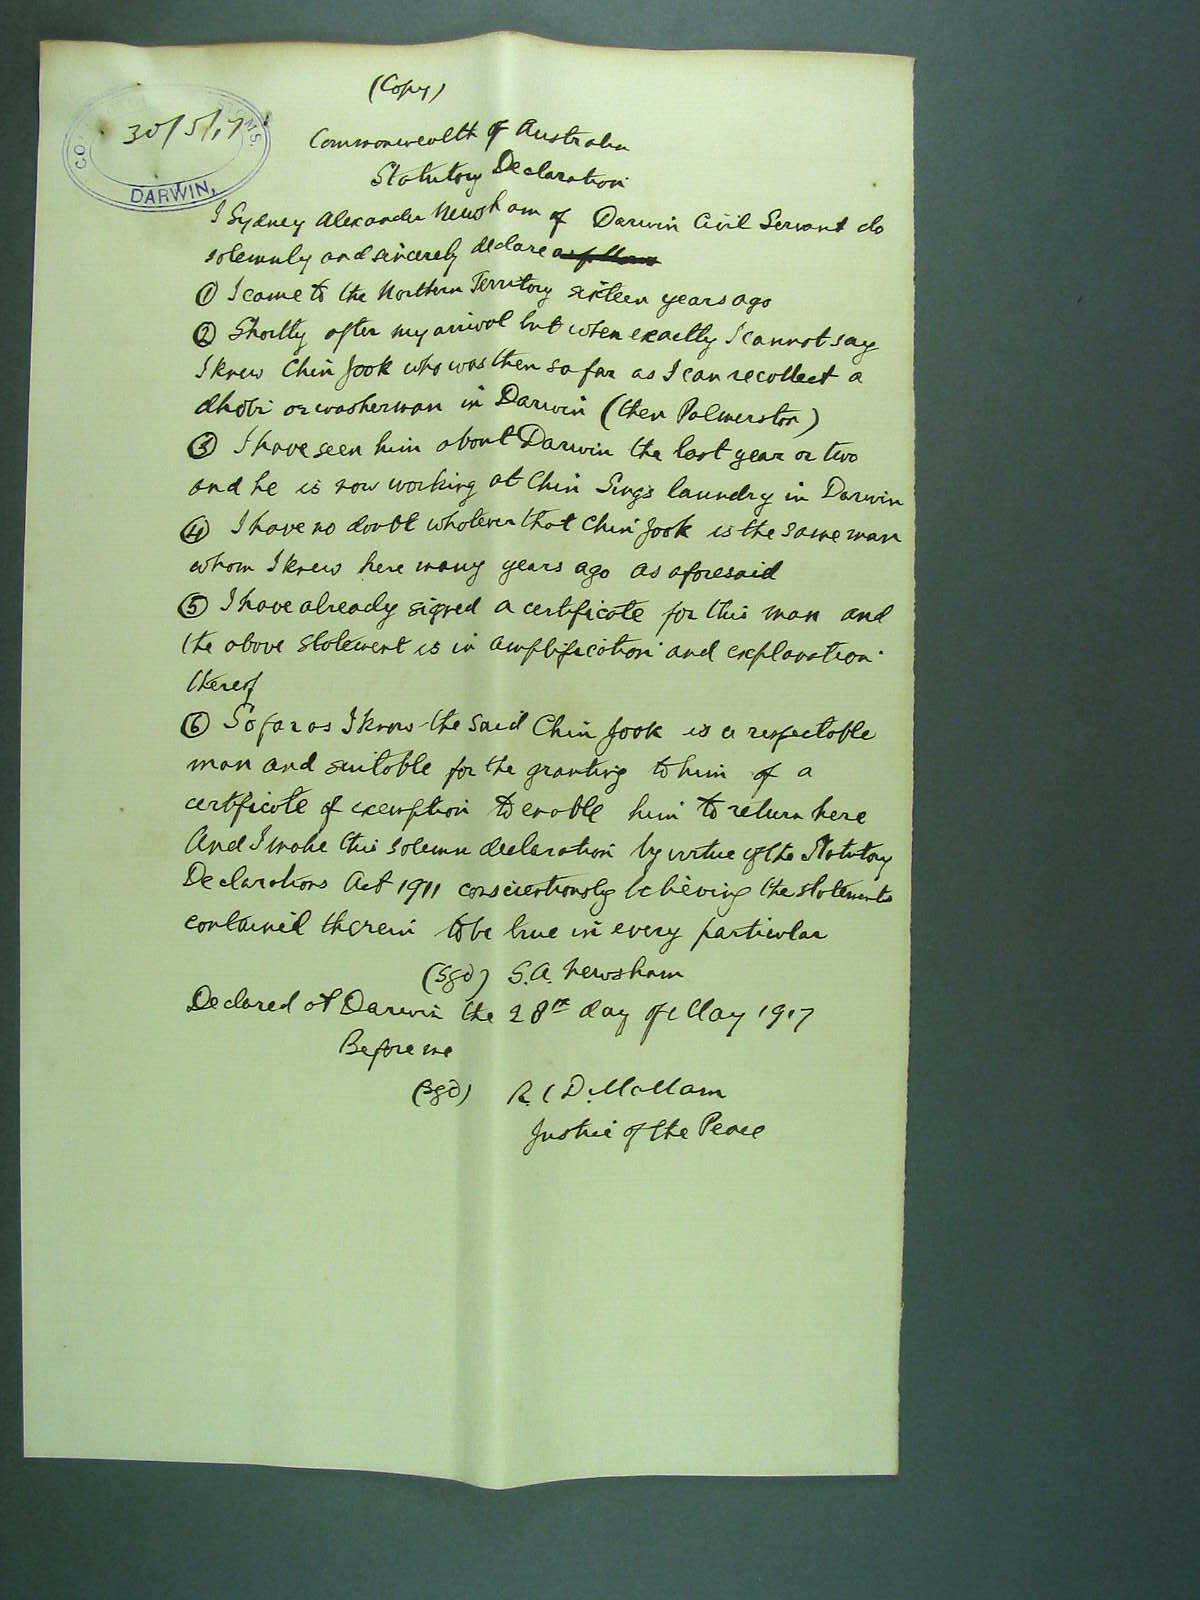 (Copy)
30/5/17
DARWIN.
Commonwealth of Australia
Statutory Declaration
I Sydney Alexander Newsham of Darwin Civil Servant do
solemnly and sincerely declare as follows
① I came to the Northern Territory sixteen years ago
② Shortly after my arrival but when exactly I cannot say
I knew Chin Jook who was then so far as I can recollect a
dhobi or washerman in Darwin (then Palmerston)
③ I have seen him about Darwin the last year or two
and he is now working at Chin Sing's laundry in Darwin
④ I have no doubt whatever that Chin Jook is the same man
whom I knew here many years ago as aforesaid
⑤ I have already signed a certificate for this man and
the above statement is in amplification and explanation
thereof
⑥ So far as I know the said Chin Jook is a respectable
man and suitable for the granting to him of a
certificate of exemption to enable him to return here
And I make this solemn declaration by virtue of the Statutory
Declarations Act 1911 conscientiously believing the statements
contained therein to be true in every particular
(Sgd) S.A. Newsham
Declared at Darwin the 28th day of May 1917
Before me
(Sgd) R. D.
Justice of the Peace